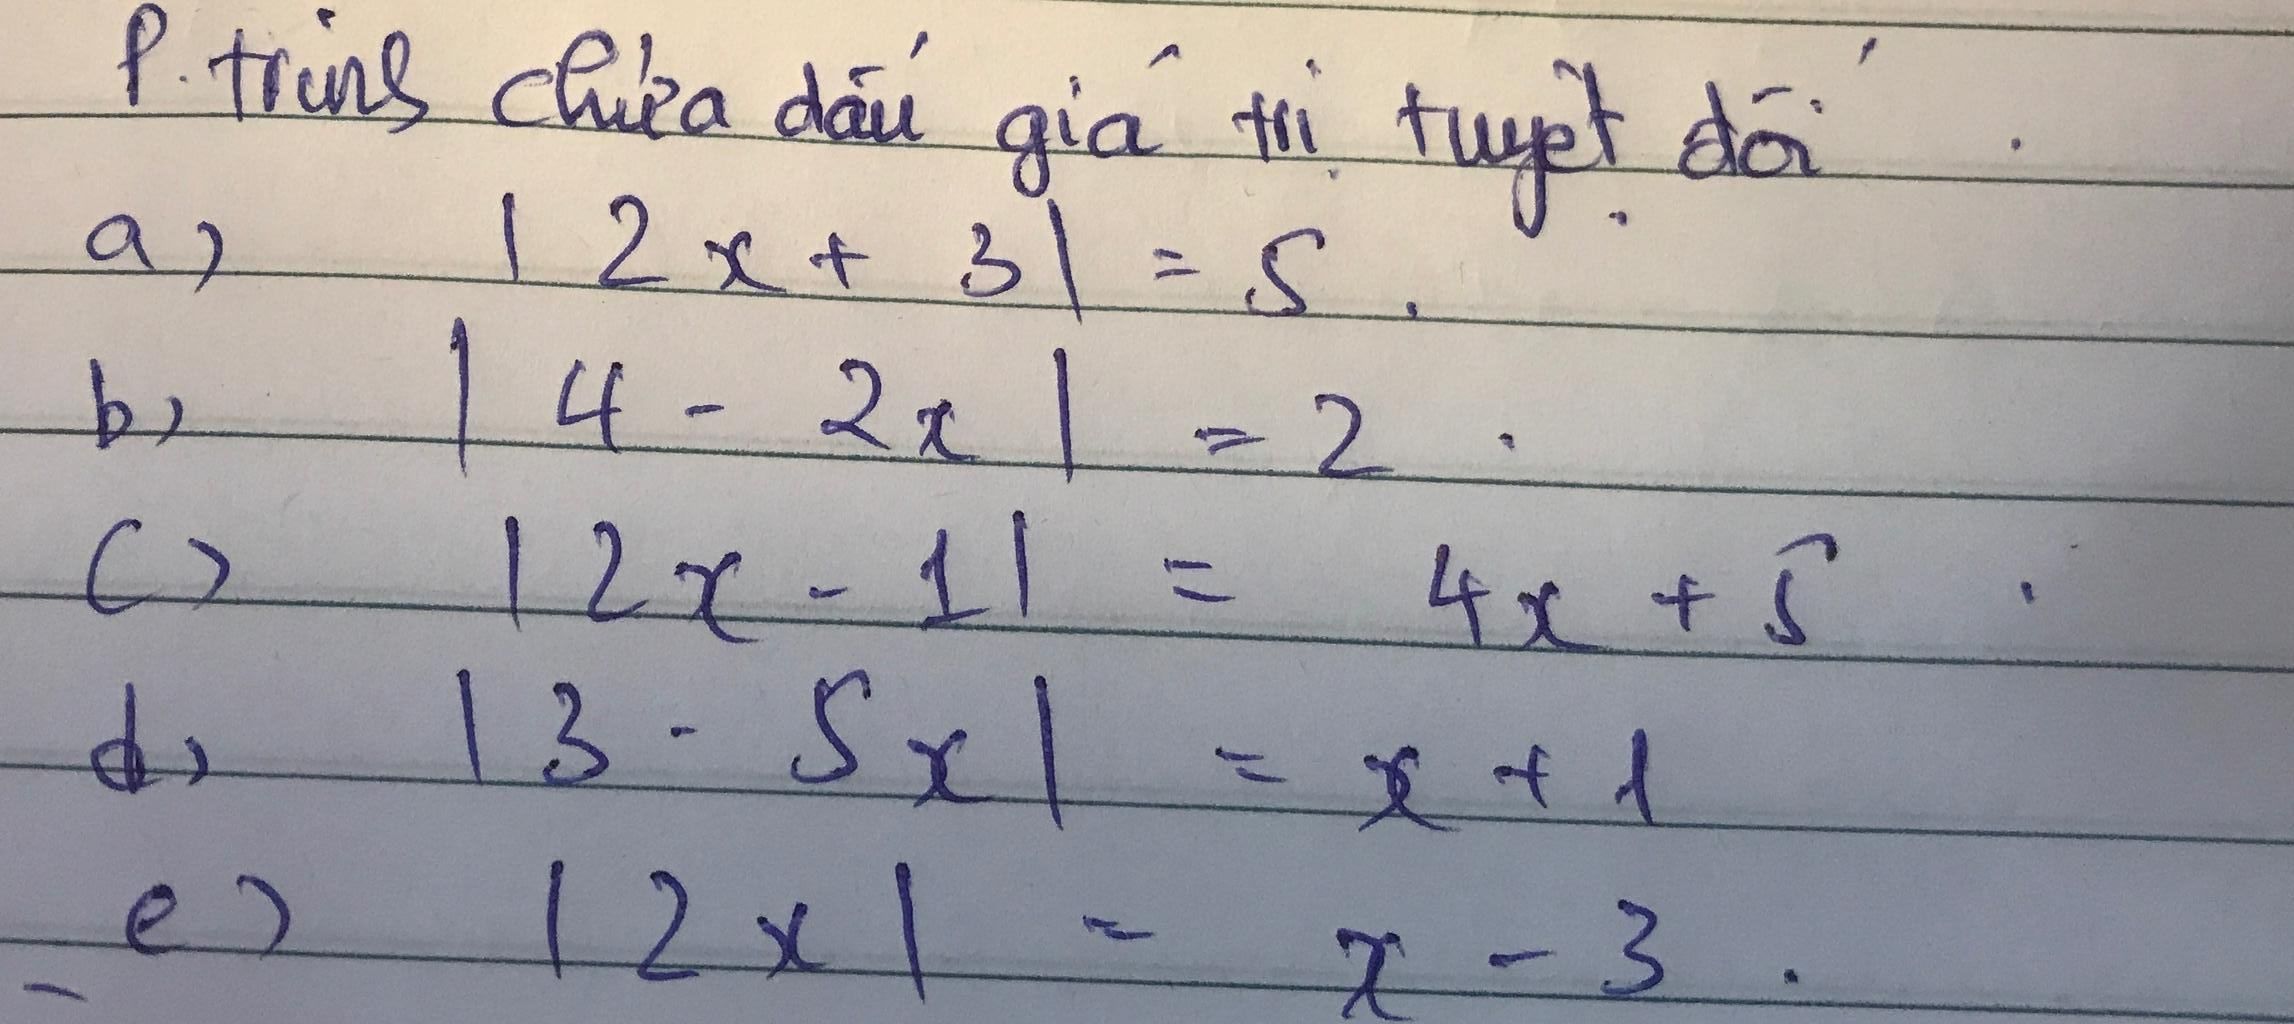 P. trình chứa dấu giá trị tuyệt đối.
a) | 2x + 3| = 5.
b) | 4 - 2x | = 2.
c) | 2x - 1| = 4x + 5.
d) | 3 - 5x | = x + 1
e) | 2x | = x - 3.